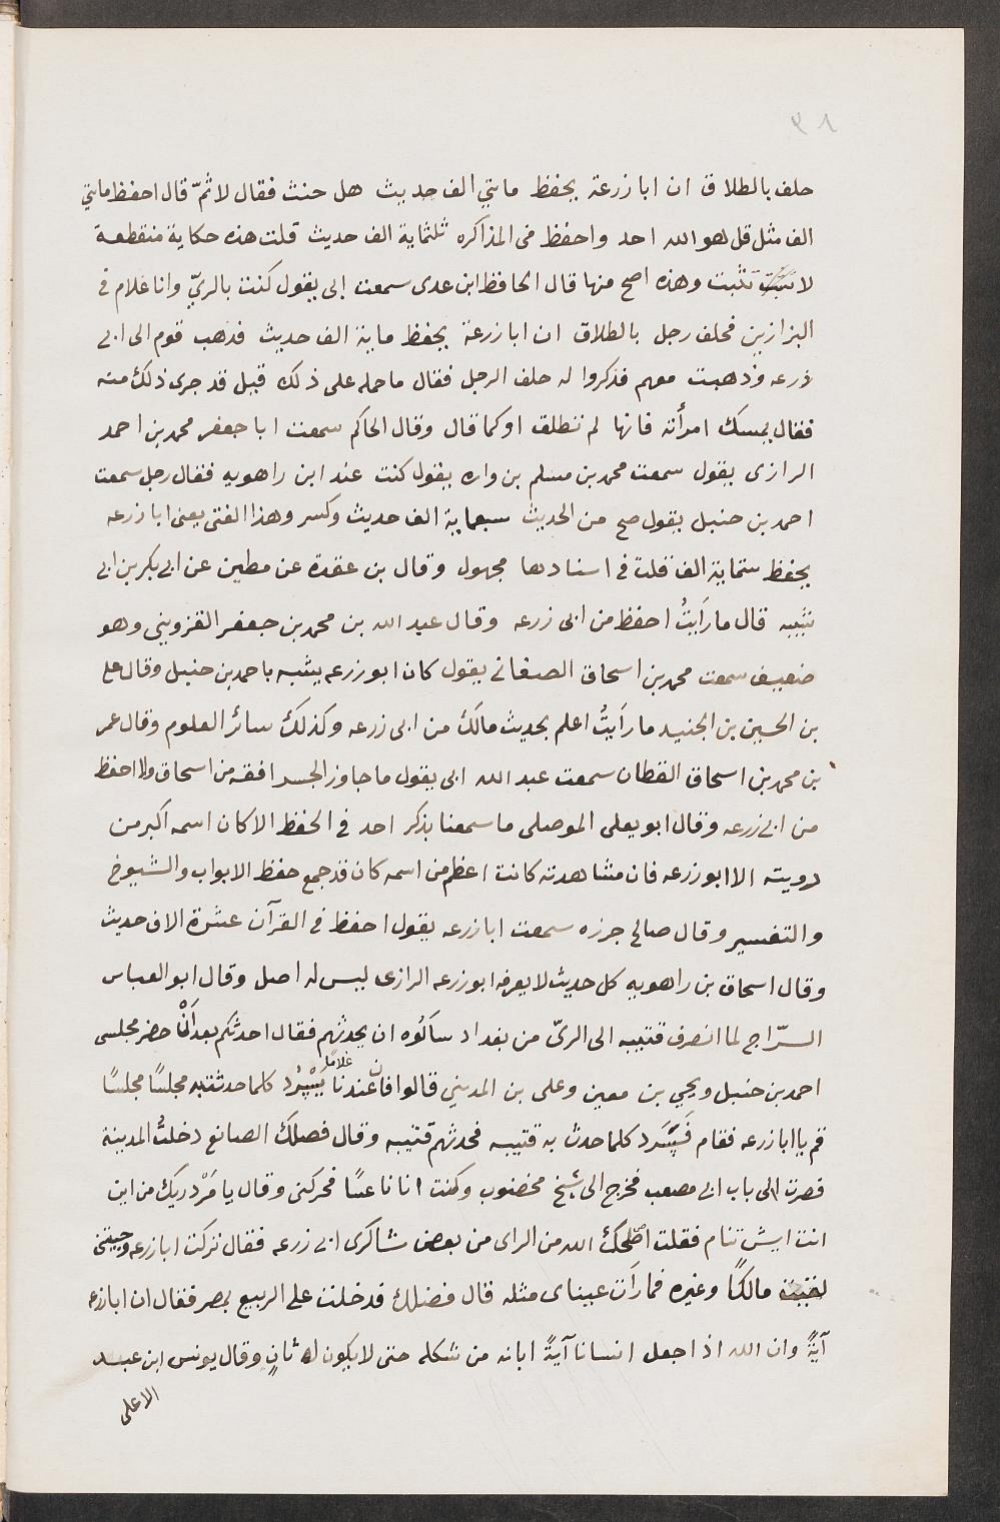 ٣٨
حلف بالطلاق ان ابا زرعة يحفظ مايتي الف حديث هل حنث فقال لا ثمّ قال احفظ مايتي
الف مثل قل هو الله احد واحفظ في المذاكره ثلثماية الف حديث قلت هذه حكاية منقطعة
لا تثبت وهذه اصح منها قال الحافظ ابن عدى سمعت ابي يقول كنت بالريّ وانا غلام في
البزازين فحلف رجل بالطلاق ان ابا زرعة يحفظ ماية الف حديث فذهب قوم الى ابي
زرعه وذهبت معهم فذكروا له حلف الرجل فقال ما حمله على ذلك قيل قد جرى ذلك منه
فقال يمسك امرأته فانها لم تطلق او كما قال وقال الحاكم سمعت ابا جعفر محمد بن احمد
الرازى يقول سمعت محمد بن مسلم بن واره يقول كنت عند ابن راهويه فقال رجل سمعت
احمد بن حنبل يقول صح من الحديث سبعماية الف حديث وكسر وهذا الفتى يعنى ابا زرعه
يحفظ ستماية الف قلت في اسنادها مجهول وقال بن عقدة عن مطين عن ابي بكر بن ابي
شيبه قال ما رأيتُ احفظ من ابى زرعه وقال عبد الله بن محمد بن جعفر القزوينى وهو
ضعيف سمعت محمد بن اسحاق الصغاني يقول كان ابو زرعه يشبه باحمد بن حنبل وقال على
بن الحسين بن الجنيد ما رأيتُ اعلم بحديث مالك من ابى زرعه وكذلك سائر العلوم وقال عمر
بن محمد بن اسحاق القطان سمعت عبد الله ابى يقول ما جاوز الجسر افقه من اسحاق ولا احفظ
من ابي زرعه وقال ابو يعلى الموصلى ما سمعنا بذكر احد في الحفظ الا كان اسمه اكبر من
رويته الا ابو زرعه فان مشاهدته كانت اعظم من اسمه كان قد جمع حفظ الابواب والشيوخ
والتفسير وقال صالح جزره سمعت ابا زرعه يقول احفظ في القرآن عشرة الاف حديث
وقال اسحاق بن راهويه كل حديث لا يعرفه ابو زرعه الرازى ليس له اصل وقال ابو العباس
السرّاج لما انصرف قتيبه الى الريّ من بغداد سألوه ان يحدثهم فقال احدثكم بعد ان حضر مجلسى
احمد بن حنبل ويحيى بن معين وعلى بن المديني قالوا فان عندنا غلاما يَسْرُد كلما حدثت به مجلسًا مجلسًا
قم يا ابا زرعه فقام فسرد كلما حدث به قتيبه فحدثهم قتيبه وقال فضلك الصائغ دخلتُ المدينة
فصرت الى باب ابي مصعب فخرج الى شيخ مخضوب وكنت انا ناعسًا فحركنى وقال يا مَرْدريك من اين
انت ايش تنام فقلت اصلحك الله من الراى من بعض شاكرى ابى زرعه فقال تركت ابا زرعه وجيتنى
لقيت مالكًا وغيره فما رأت عيناى مثله قال فضلك قد خلت على الربيع بمصر فقال ان ابا زرعه
آيةً وان الله اذا جعل انسانا آيةً ابانه من شكله حتى لا يكون له ثانٍ وقال يونس ابن عبد
الاعلى